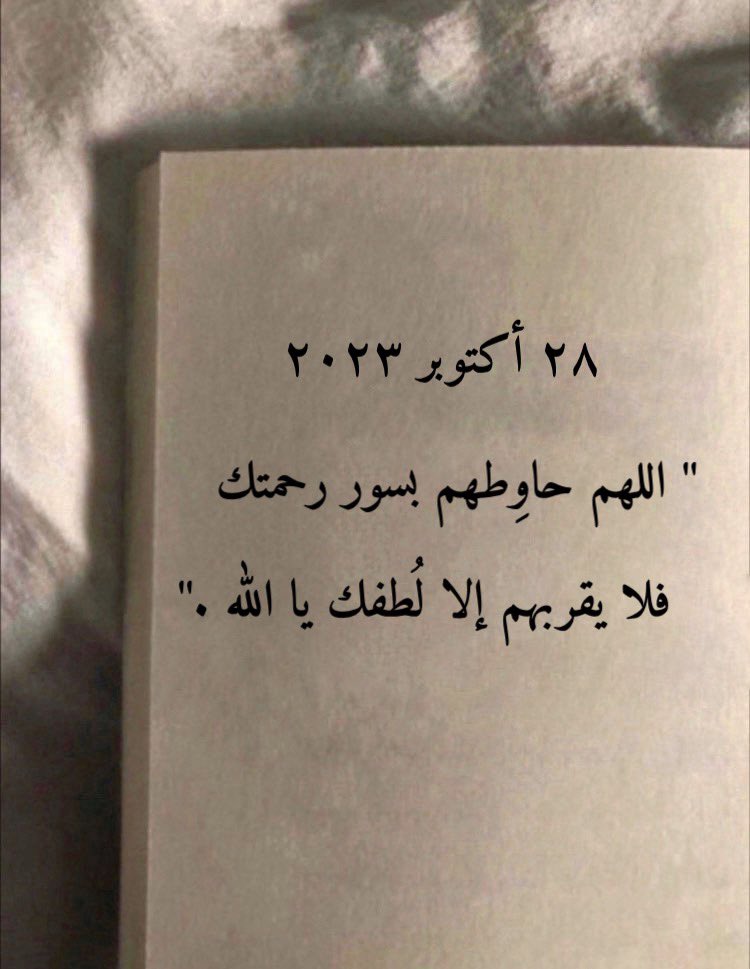 ٢٨ أكتوبر ٢٠٢٣
" اللهم حاوِطهم بسور رحمتك
فلا يقربهم إلا لُطفك يا الله ."